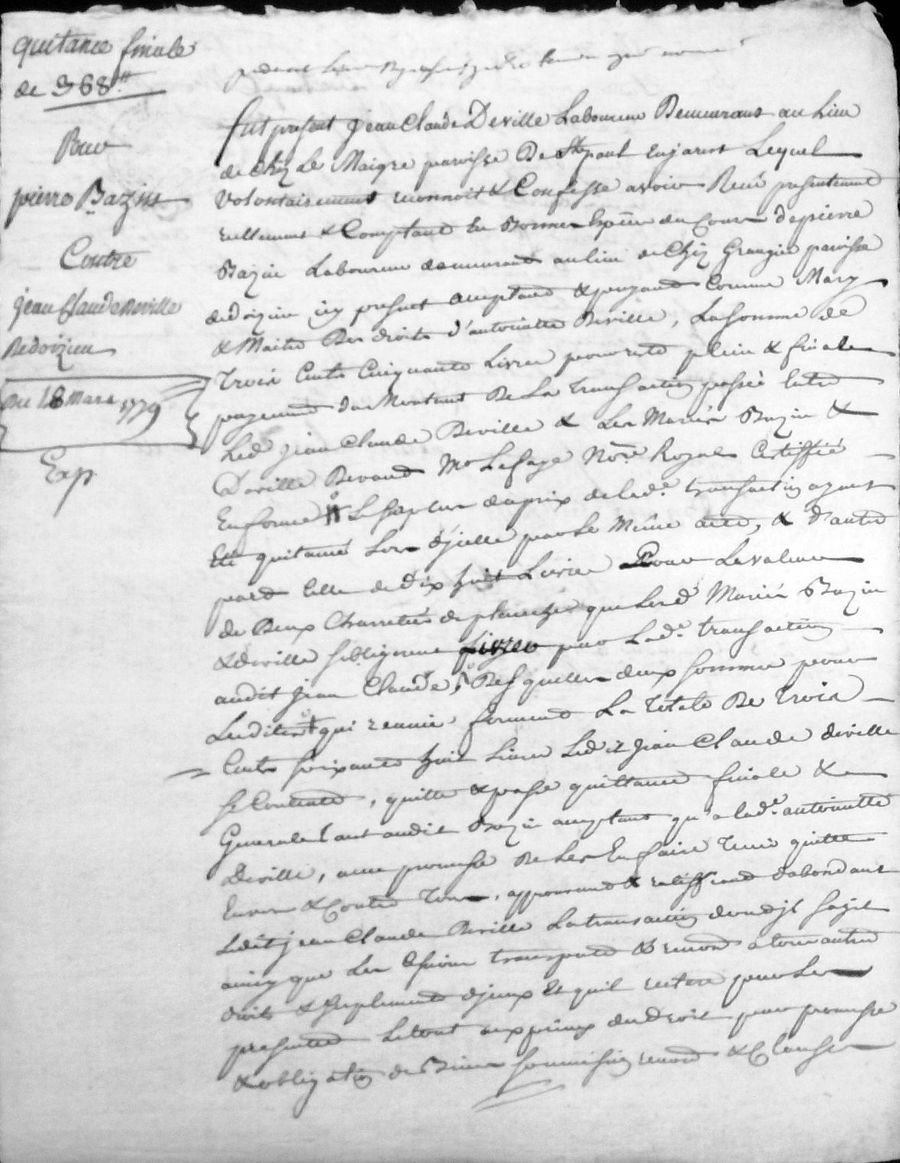 quitance finale
de 368tt
Pour
pierre Bazin
Contre
jean Claude Deville
Dedoizieu
Du 18 Mars 1779
Exp
fut présent jean Claude Deville Laboureur Demeurant au Lieu
de Chez Le Maigre paroisse De St paul Enjarest Lequel
Volontairement reconnoit & Confesse avoir Reçu présentement
réellement & Comptant En Bonnes Espèces du Cours de pierre
Bazin Laboureur demeurant au lieu de Chez Grangié paroisse
dedoizieu icy présent acceptant & payant Comme Mary
& Maitre Des droits d'antoinette Deville, La somme de
Trois Cents Cinquante Livres pour reste plein & finale
payement du Montant De La Transaction passée Entre
Led. jean Claude Deville & Les Mariés Bazin &
Deville Devant Me Lafaye Nore Royal Certiffié
En forme Le Surplus du prix de lade. transaction ayant
Eté quitancé Lors d'jcelle par le Même acte, & d'autre
part Celle de Dix huit Livres Pour La valeur
de Deux Charretées de planches que Lesd. Mariés Bazin
& deville s'obligerent par Lade. transaction
audit jean Claude, Des quelles deux sommes pour
Lesdites qui réunies forment La Totale De Trois
Cents soixante huit Livres Ledit jean Claude deville
se Contente, quitte & passe quittance finale &
Generale tant audit Bazin acceptant qu'a lade. antoinette
Deville, avec promesse De Les En faire Tenir quitte
Envers & Contre Tous, approuvant & ratiffiant d'abondant
Ledit jean Claude Deville La transaction dont il s'agit
ainsy que Les Cession transports & remond a tous autres
droits & suplements d'jceux Et quil reitere par Les
presentes Le tout aux peines du Droit par promesse
& obligation de Biens soumission renond & Clauses